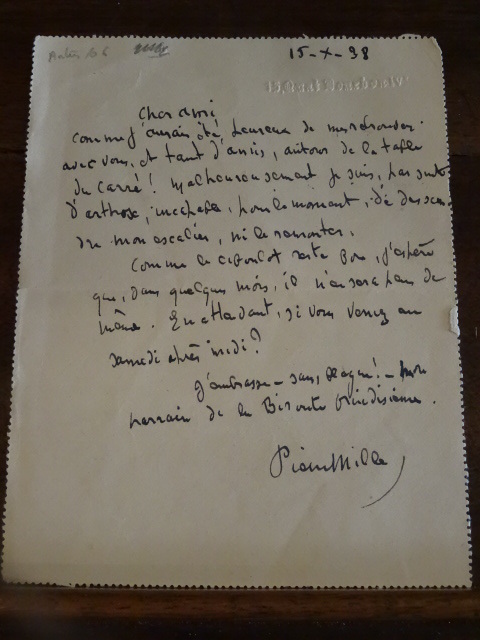 15-X-38
Cher ami
Comme j'aurais été heureux de me retrouver
avec vous, et tant d'amis, autour de la table
du Carré! Malheureusement je suis, par suite
d'arthose, incapable, pour le moment, de descen-
dre mon escalier, ni le remonter.
Comme le ciboulot reste bon, j'espère
que, dans quelques mois, il n'en sera plus de
même. En attendant, si vous veniez un
samedi après midi?
J'embrasse - sans blague! - mon
parrain de la
Pierre Mille